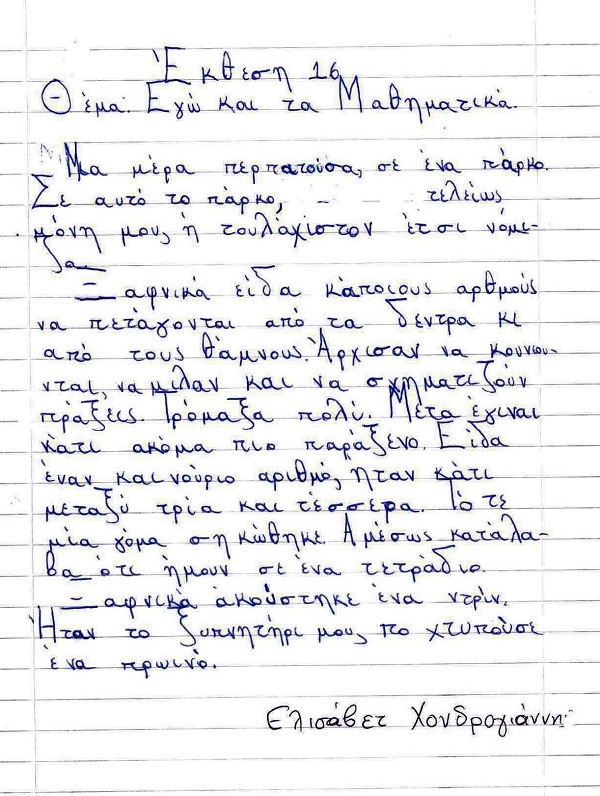 Έκθεση 16
Θέμα: Εγώ και τα Μαθηματικά.
Μια μέρα περπατούσα, σε ένα πάρκο.
Σε αυτό το πάρκο, τελείως
μόνη μους ή τουλάχιστον έτσι νόμι-
ζα
Ξαφνικά είδα κάποιους αρθμούς
να πετάγονται από τα δεντρα κι
από τους θάμνους. Άρχισαν να κουνιου-
νται, να μιλάν και να σχηματιζούν
πράξεις. Τρόμαξα πολύ. Μετά έγιναι
κατι ακόμα πιο παράξενο. Είδα
έναν καινούριο αριθμό, ήταν κάτι
μεταξύ τρία και τέσσερα. Τό τε
μία γόμα σηκώθηκε. Αμέσως κατάλα-
βα ότι ήμουν σε ένα τετράδιο.
Ξαφνικά ακούστηκε ένα ντρίν.
Ήταν το ξυπνητήρι μους πο χτυπούσε
ένα πρωινό.
Ελισάβετ Χονδρογιάννη